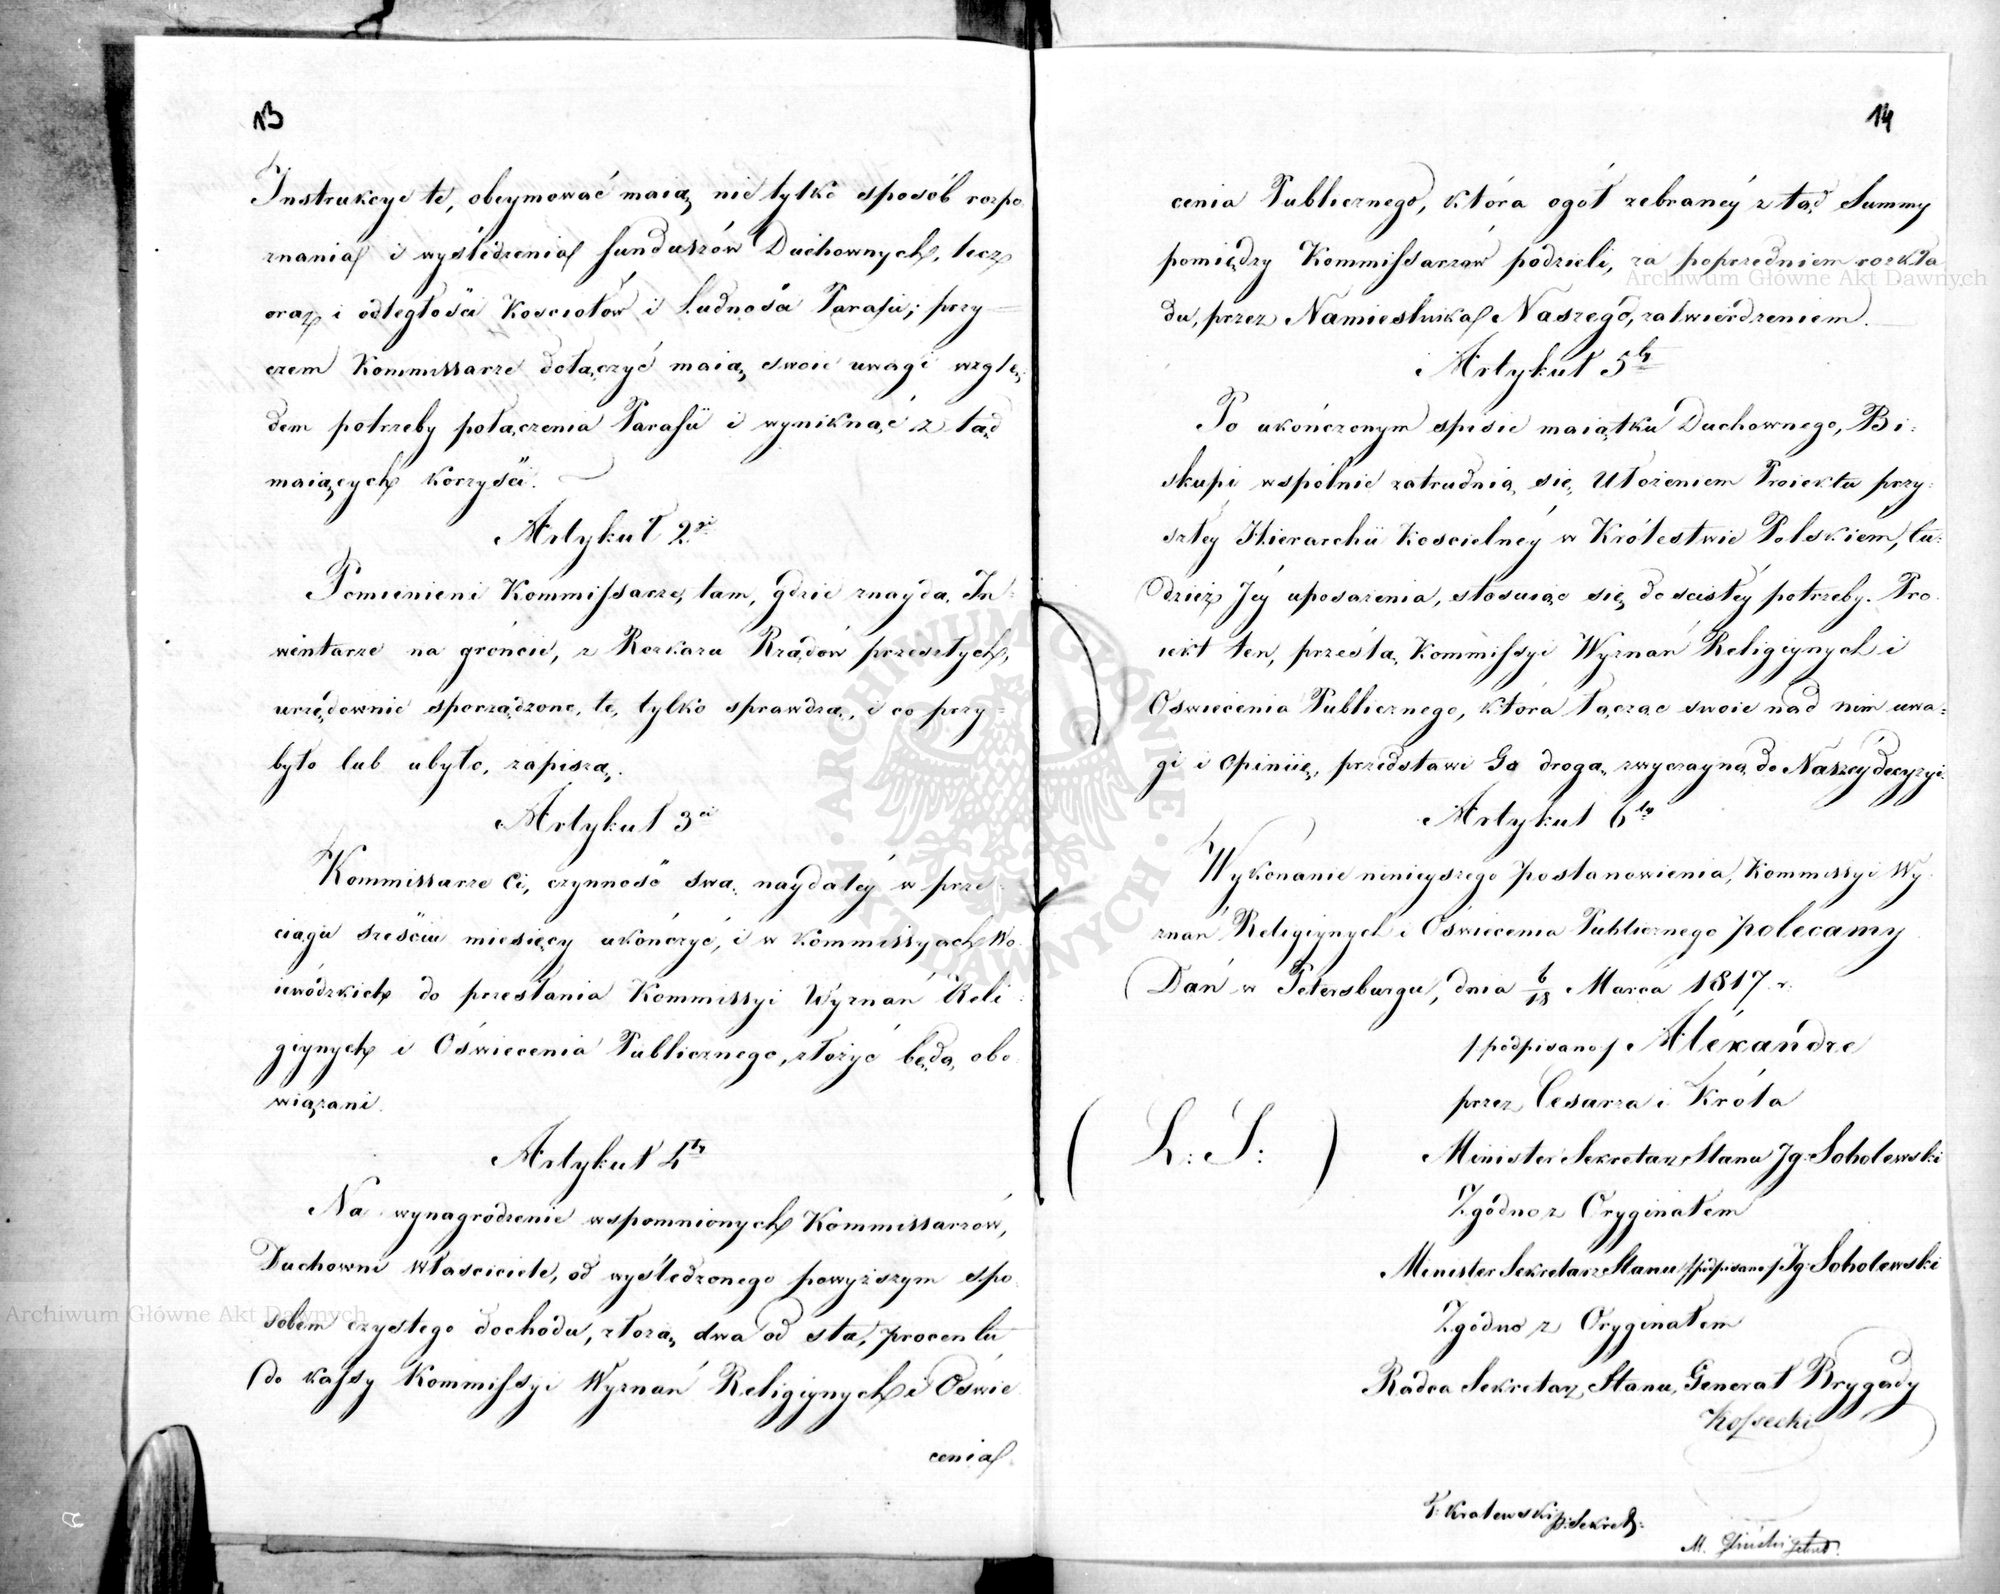 13
Instrukcye te, obeymować maią, nie tylko sposób rozpo
znania i wyśledzenia funduszów Duchownych, lecz
oraz i odległości Kosciołów i Ludności Parafii; przy
czem Kommissarze dołączyć maią, swoie uwagi wzglę:
dem potrzeby połączenia Parafii i wyniknąć z tąd
maiących korzyści.
Artykuł 2gi
Pomienieni Kommissarze, tam, gdzie znaydą In:
wentarze na gróncie, z Rozkazu Rządów przeszłych,
urzędownie sporządzone, te, tylko sprawdzą, i co przy:
było lub ubyło, zapiszą.
Artykuł 3ci
Kommissarze Ci, czynność swą, naydaléy w prze:
ciągu sześciu miesięcy ukończyć, i w Kommissyach Wo:
iewódzkich do przesłania Kommissyi Wyznań Reli:
giynych i Oświecenia Publicznego, złożyć będą, obo:
wiązani.
Artykuł 4ty
Na wynagrodzenie wspomnionych Kommissarzów,
Duchowni Właściciele, od wyśledzonego powyższym spo:
sobem czystego dochodu, złożą, dwa od sta, procentu
do kassy Kommissyi Wyznań Religiynych i Oświe
cenia
14
cenia Publicznego, która ogół zebranéy z tąd Summy
pomiędzy Kommissarzów podzieli, za poprzedniem rozkła
du, przez Namiestnika Naszego, zatwierdzeniem.
Artykuł 5ty
Po ukończonym spisie maiątku Duchownego, Bi:
skupi wspólnie zatrudnią się, Ułożeniem Proiektu przy:
szłéy Hierarchii Koscielnéy w Królestwie Polskiém, tu:
dzież Jéy uposażenia, stosuiąc się, do scisłéy potrzeby. Pro:
iekt ten, prześlą, Kommissyi Wyznań Religiynych i
Oświecenia Publicznego, która łącząc swoie nad nim uwa:
gi i Opiniię, przedstawi Go drogą, zwyczayną do Naszéy decyzyi.
Artykuł 6ty
Wykonanie ninieyszego postanowienia, Kommissyi Wy:
znań Religiynych i Oświecenia Publicznego polecamy
Dań w Petersburgu, dnia 6/18 Marca 1817 r.
/podpisano/ Alexandre
przez Cesarza i Króla
( L: S: ) Minister Sekretarz Stanu Jg: Sobolewski
Zgodno z Oryginałem
Minister Sekretarz Stanu /podpisano/ Jg: Sobolewski
Zgodno z Oryginałem
Radca Sekretarz Stanu, Generał Brygady
Kossecki
Archiwum Główne Akt Dawnych
Archiwum Główne Akt Dawnych
ARCHIWUM GŁÓWNE AKT DAWNYCH